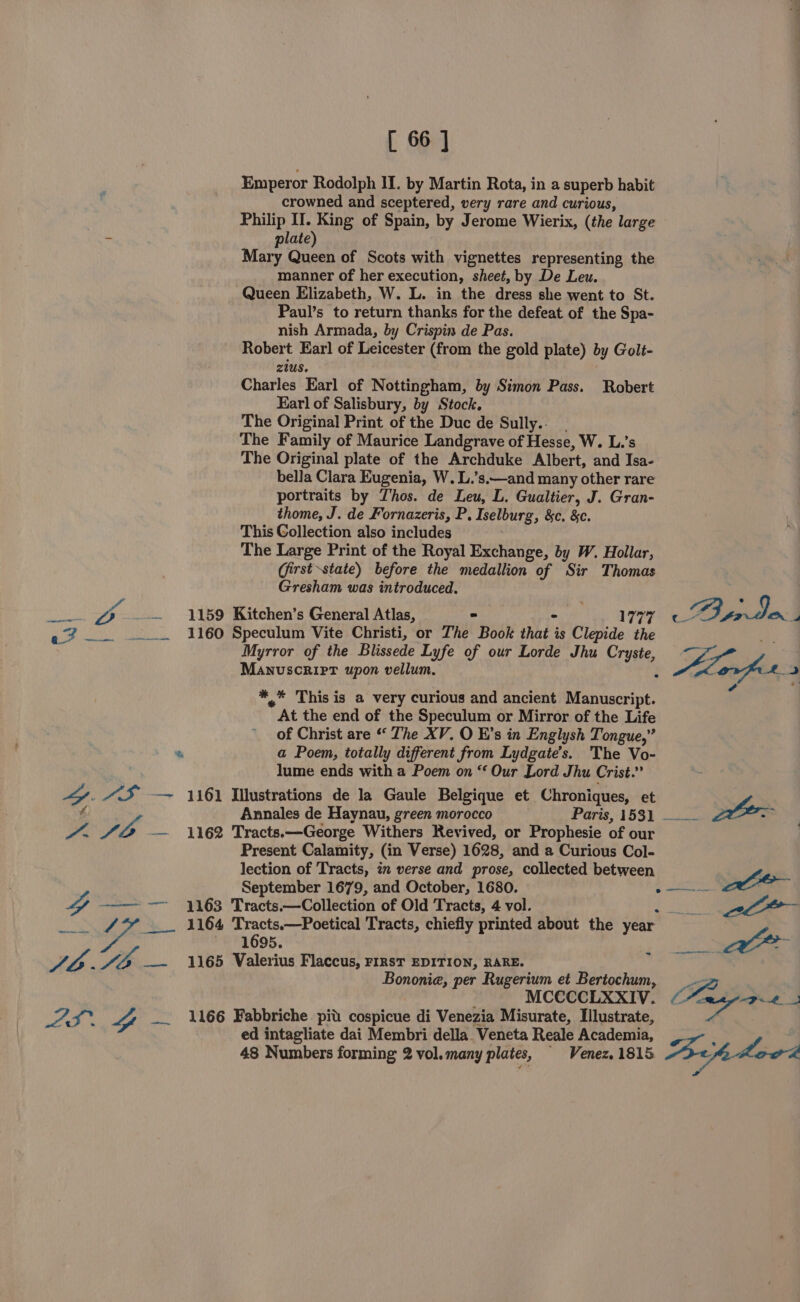 [ 66 ]
Emperor Rodolph II. by Martin Rota, in a superb habit
crowned and sceptered, very rare and curious,
Philip II. King of Spain, by Jerome Wierix, (the large
plate)
Mary Queen of Scots with vignettes representing the
manner of her execution, sheet, by De Leu.
Queen Elizabeth, W. L. in the dress she went to St.
Paul's to return thanks for the defeat of the Spa-
nish Armada, by Crispin de Pas.
Robert Earl of Leicester (from the gold plate) by Golt-
zius.
Charles Earl of Nottingham, by Simon Pass. Robert
Earl of Salisbury, by Stock.
The Original Print of the Duc de Sully.
The Family of Maurice Landgrave of Hesse, W. L.'s
The Original plate of the Archduke Albert, and Isa-
bella Clara Eugenia, W. L.'s.—and many other rare
portraits by Thos. de Leu, L. Gualtier, J. Gran-
thome, J. de Fornazeris, P. Iselburg, &c. &c.
This Collection also includes
The Large Print of the Royal Exchange, by W. Hollar,
(first state) before the medallion of Sir Thomas
Gresham was introduced.
— 6 — 1159 Kitchen's General Atlas, - - 1777
3 — — 1160 Speculum Vite Christi, or The Book that is Clepide the
Myrror of the Blissede Lyfe of our Lorde Jhu Cryste,
MANUSCRIPT upon vellum.
*.* This is a very curious and ancient Manuscript.
At the end of the Speculum or Mirror of the Life
of Christ are "The XV. O E's in Englysh Tongue,"
a Poem, totally different from Lydgate's. The Vo-
lume ends with a Poem on "Our Lord Jhu Crist."
4. 15 — 1161 Illustrations de la Gaule Belgique et Chroniques, et
Annales de Haynau, green morocco Paris, 1531
1. 16 — 1162 Tracts.—George Withers Revived, or Prophesie of our
Present Calamity, (in Verse) 1628, and a Curious Col-
lection of Tracts, in verse and prose, collected between
September 1679, and October, 1680.
4 — — 1163 Tracts.—Collection of Old Tracts, 4 vol.
— 17 — 1164 Tracts.—Poetical Tracts, chiefly printed about the year
1695.
16. 16 — 1165 Valerius Flaccus, FIRST EDITION, RARE.
Bononiæ, per Rugerium et Bertochum,
MCCCCLXXIV.
25. 4 — 1166 Fabbriche più cospicue di Venezia Misurate, Illustrate,
ed intagliate dai Membri della Veneta Reale Academia,
48 Numbers forming 2 vol. many plates, Venez. 1815